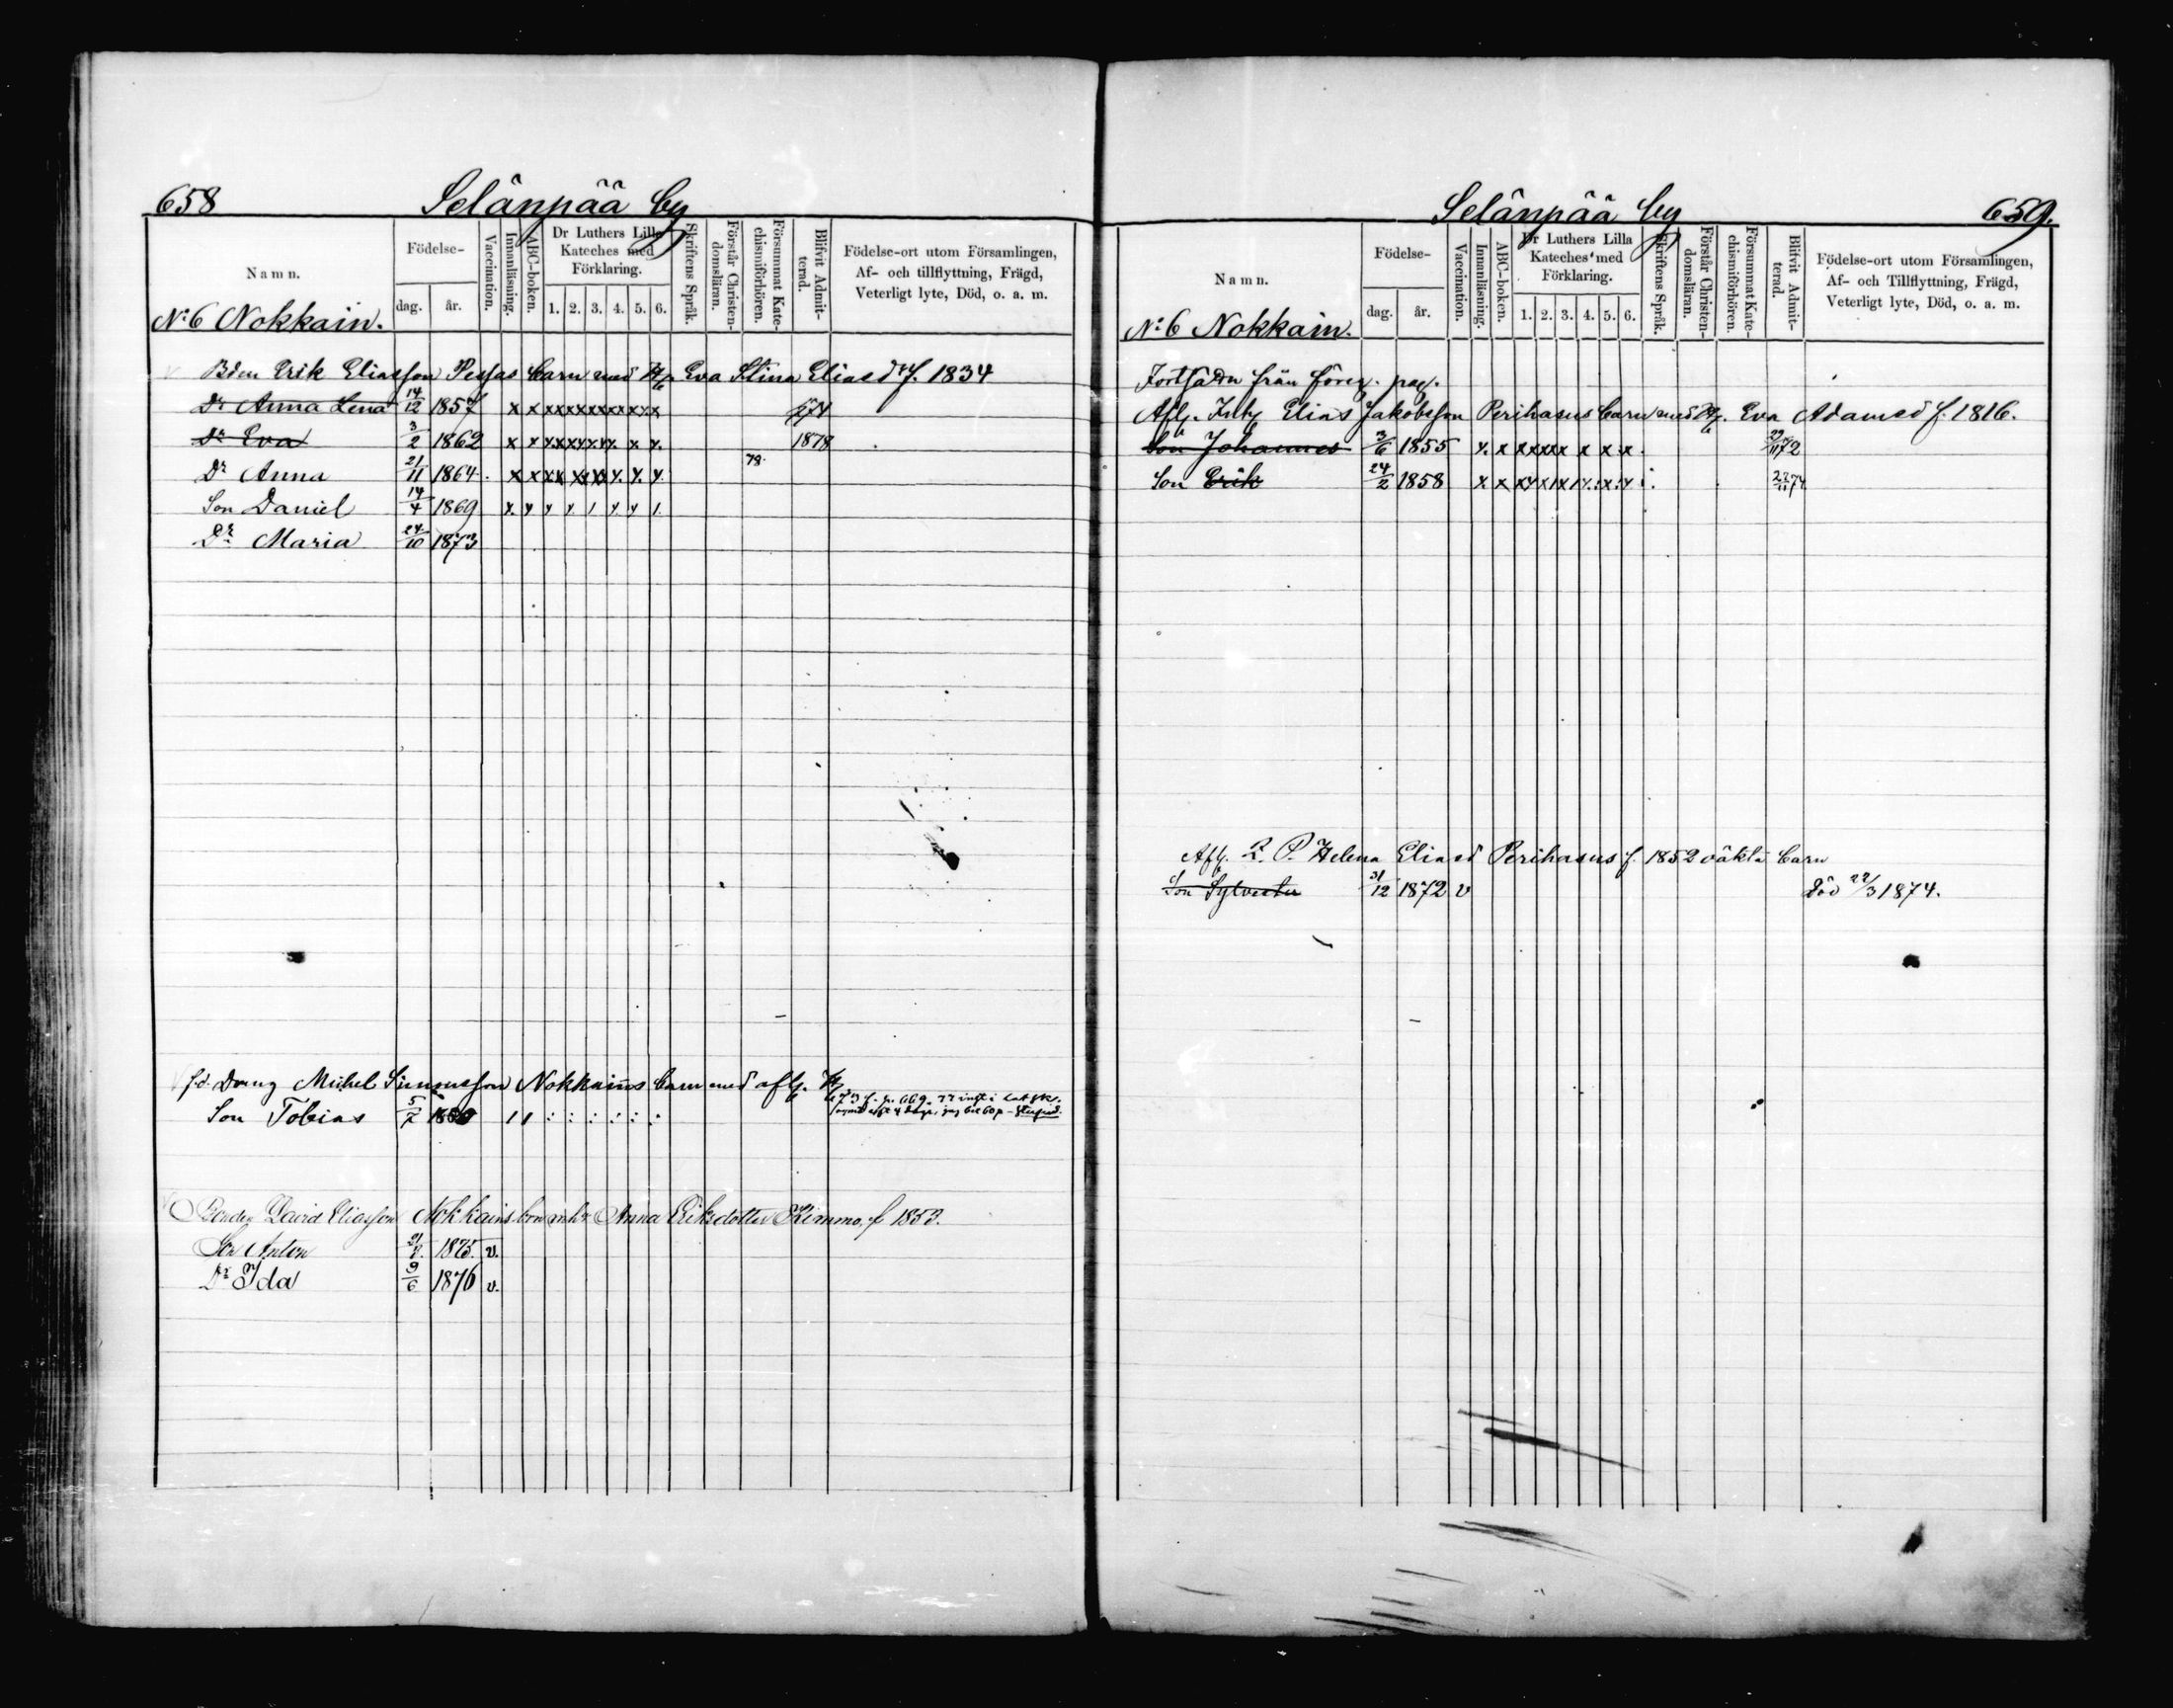 658 Selänpää by
Namn. Födelse- dag. år. Vaccination. Innanläsning. ABC-boken. Dr Luthers Lilla Kateches med Förklaring. 1. 2. 3. 4. 5. 6. Skriftens Språk. Förstår Christendomsläran. Försummat Katechismiförhören. Blifvit Admitterad. Födelse-ort utom Församlingen, Af- och tillflyttning, Frägd, Veterligt lyte, Död, o. a. m.
No 6 Nokkain.
Bden Erik Eliasson Pessas barn med H. Eva Stina Eliasdr f. 1834
Dr Anna Lena 14/12 1857 x x x x x x x x x x x 74
Dr Eva 3/2 1862 x x x x x x x x x x 1878
Dr Anna 21/11 1864 x x x x x x x x x x 78
Son Daniel 14/4 1869
Dr Maria 24/10 1873
f.d. Dreng Michel Simonsson Nokkains barn med afl. H.
Son Tobias 5/7
Bonden David Eliasson Nokkains barn m. h. Anna Eriksdotter Kimmo, f 1853.
Son Anton 1875. v.
Dr Ida 9/6 1876 v.
Selänpää by 659.
Namn. Födelse- dag. år. Vaccination. Innanläsning. ABC-boken. Dr Luthers Lilla Kateches med Förklaring. 1. 2. 3. 4. 5. 6. Skriftens Språk. Förstår Christendomsläran. Försummat Katechismiförhören. Blifvit Admitterad. Födelse-ort utom Församlingen, Af- och Tillflyttning, Frägd, Veterligt lyte, Död, o. a. m.
No 6 Nokkain.
Forts. från föreg. pag.
Afl. Inh. Elias Jakobsson Perihasus barn med H. Eva Adamsd f. 1816.
Son Johannes 3/6 1855 x x x x x x x x x x 72
Son Erik 24/2 1858 x x x x x x x x x 74
Afl. Q. P. Helena Eliasd Perihasus f. 1852 oäkta barn
Son Sylvester 31/12 1872 v död 22/3 1874.